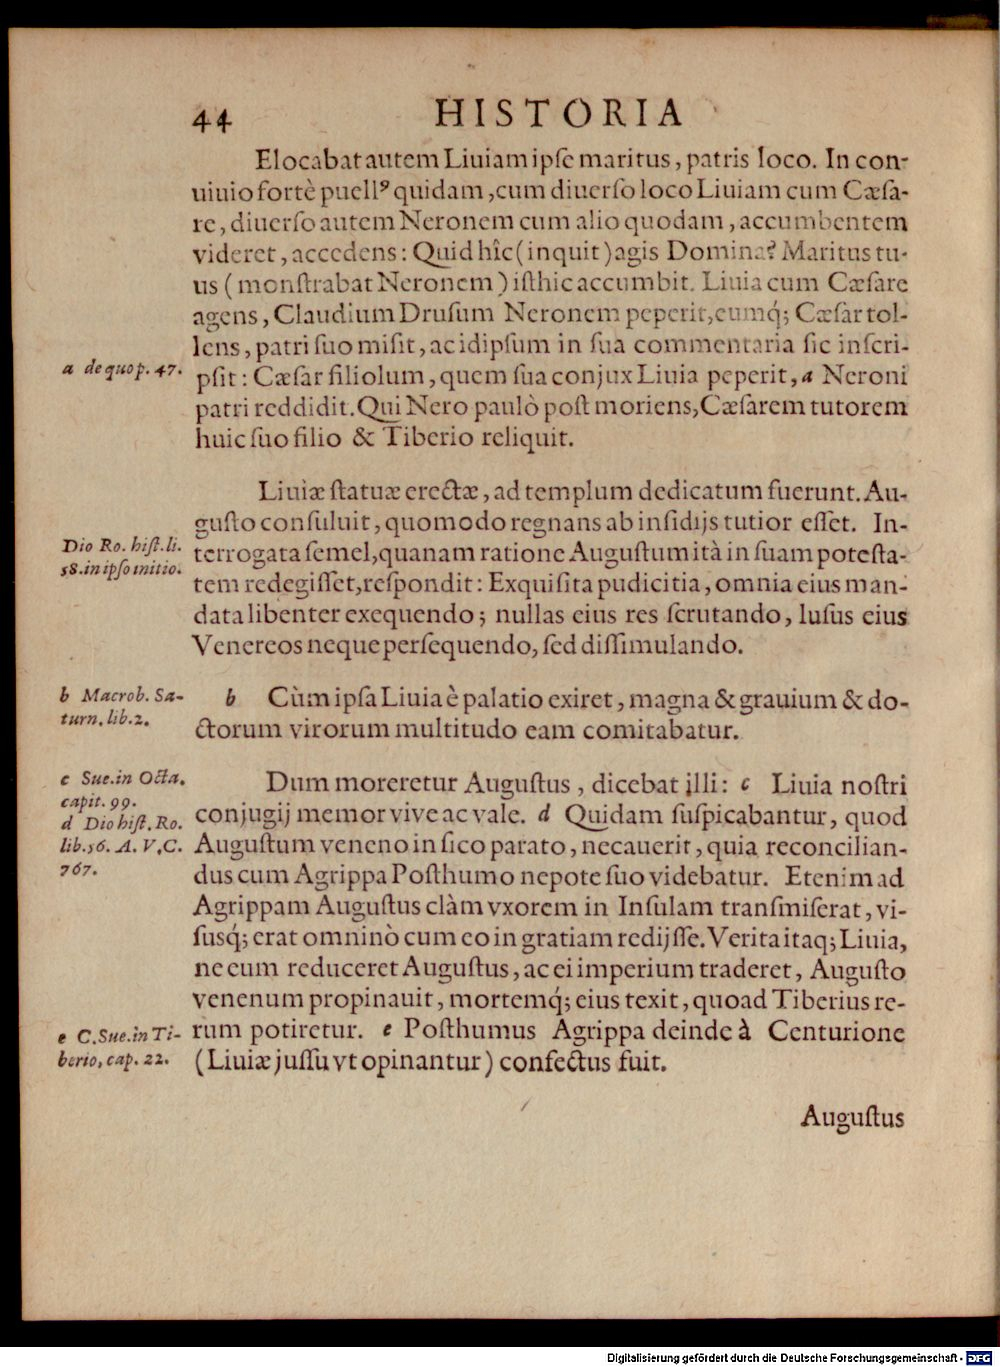 44 HISTORIA
Elocabat autem Liuiam ipſe maritus, patris loco. In con-
uiuio fortè puellꝰ quidam, cum diuerſo loco Liuiam cum Cæſa-
re, diuerſo autem Neronem cum alio quodam, accumbentem
videret, accedens: Quid hîc (inquit) agis Domina? Maritus tu-
us (monſtrabat Neronem) iſthic accumbit. Liuia cum Cæſare
agens, Claudium Druſum Neronem peperit, eumq́; Cæſar tol-
lens, patri ſuo miſit, ac idipſum in ſua commentaria ſic inſcri-
a de quo p. 47.
pſit: Cæſar filiolum, quem ſua conjux Liuia peperit, a Neroni
patri reddidit. Qui Nero paulò poſt moriens, Cæſarem tutorem
huic ſuo filio & Tiberio reliquit.
Liuiæ ſtatuæ erectæ, ad templum dedicatum fuerunt. Au-
guſto conſuluit, quomodo regnans ab inſidijs tutior eſſet. In-
Dio Ro. hiſt. li.
58. in ipſo initio.
terrogata ſemel, quanam ratione Auguſtum ità in ſuam poteſta-
tem redegiſſet, reſpondit: Exquiſita pudicitia, omnia eius man-
data libenter exequendo; nullas eius res ſcrutando, luſus eius
Venereos neque perſequendo, ſed diſſimulando.
b Macrob. Sa-
turn. lib. 2.
b Cùm ipſa Liuia è palatio exiret, magna & grauium & do-
ctorum virorum multitudo eam comitabatur.
c Sue. in Octa.
capit. 99.
d Dio hiſt. Ro.
lib. 56. A. V. C.
767.
Dum moreretur Auguſtus, dicebat illi: c Liuia noſtri
conjugij memor vive ac vale. d Quidam ſuſpicabantur, quod
Auguſtum veneno in fico parato, necauerit, quia reconcilian-
dus cum Agrippa Poſthumo nepote ſuo videbatur. Etenim ad
Agrippam Auguſtus clàm vxorem in Inſulam tranſmiſerat, vi-
ſusq́; erat omninò cum eo in gratiam redijſſe. Verita itaq; Liuia,
ne eum reduceret Auguſtus, ac ei imperium traderet, Auguſto
venenum propinauit, mortemq́; eius texit, quoad Tiberius re-
e C. Sue. in Ti-
berio, cap. 22.
rum potiretur. e Poſthumus Agrippa deinde à Centurione
(Liuiæ juſſu vt opinantur) confectus fuit.
Auguſtus
Digitalisierung gefördert durch die Deutsche Forschungsgemeinschaft - DFG